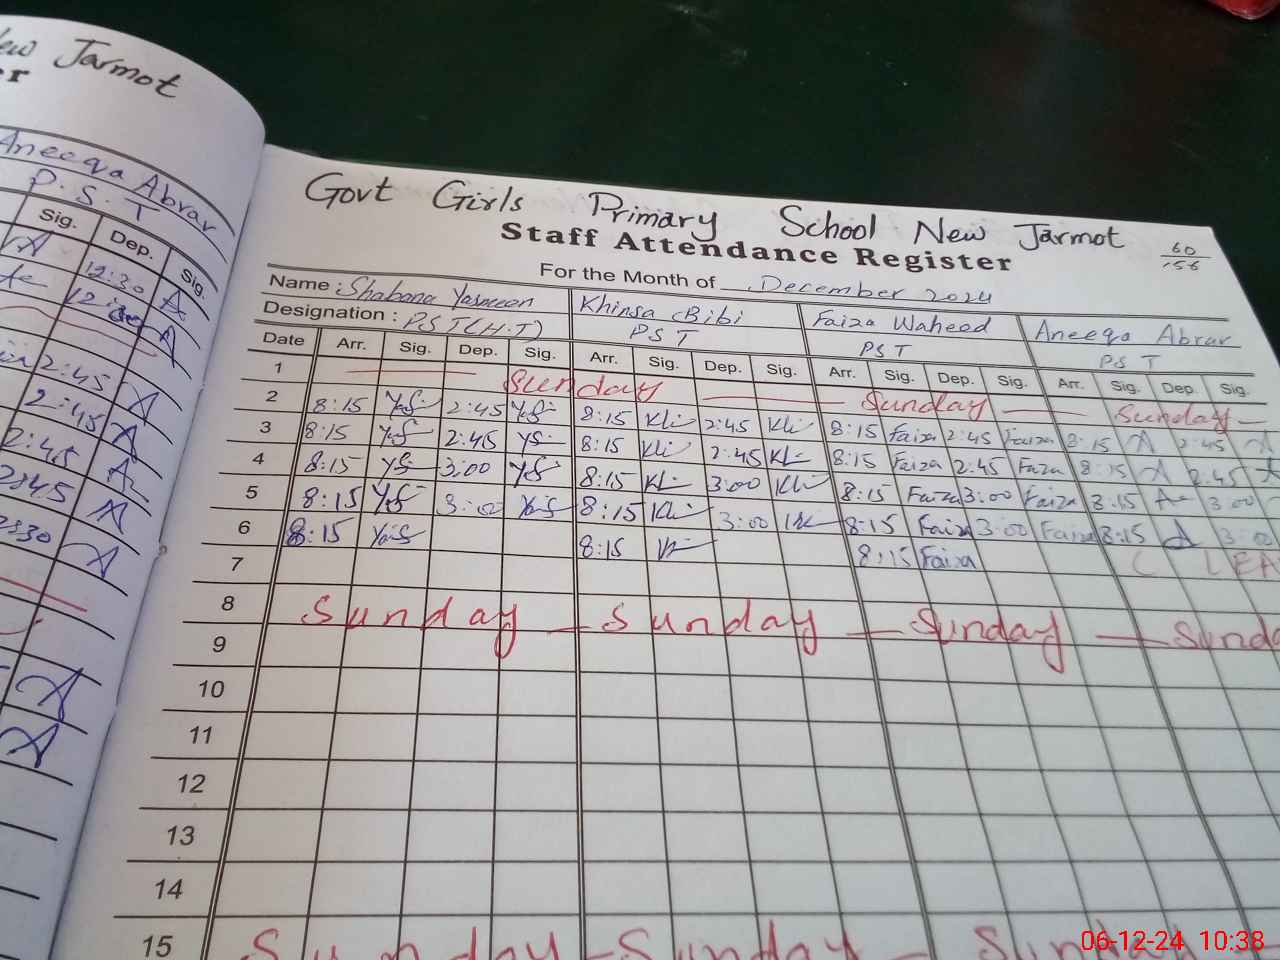 New Jarmot
er
Aneeqa Abrar
P.S.T
Sig. Dep. Sig.
A 12:30 A
A
2:45 A
2:45 A
2:45 A
2:45 A
2:30 A
A
A
Govt Girls Primary School New Jarmot
60
156
Staff Attendance Register
For the Month of December 2024
Name : Shabana Yasmeen Khinsa Bibi Faiza Waheed Aneeqa Abrar
Designation : PST(H.T) PST PST PST
Date Arr. Sig. Dep. Sig. Arr. Sig. Dep. Sig. Arr. Sig. Dep. Sig. Arr. Sig. Dep. Sig.
1 Sunday Sunday Sunday
2 8:15 2:45 8:15 Kli 2:45 Kli 8:15 Faiza 2:45 Faiza 8:15 A 2:45 A
3 8:15 2:45 8:15 Kli 2:45 Kli 8:15 Faiza 2:45 Faiza 8:15 A 2:45 A
4 8:15 3:00 8:15 Kli 3:00 Kli 8:15 Faiza 3:00 Faiza 8:15 A 3:00
5 8:15 3:00 8:15 Kli 3:00 8:15 Faiza 3:00 Faiza 8:15 A 3:00
6 8:15 8:15 8:15 Faiza C LEA
7
8 Sunday Sunday Sunday Sund
9
10
11
12
13
14
15 Sunday Sunday Sunday
06-12-24 10:38